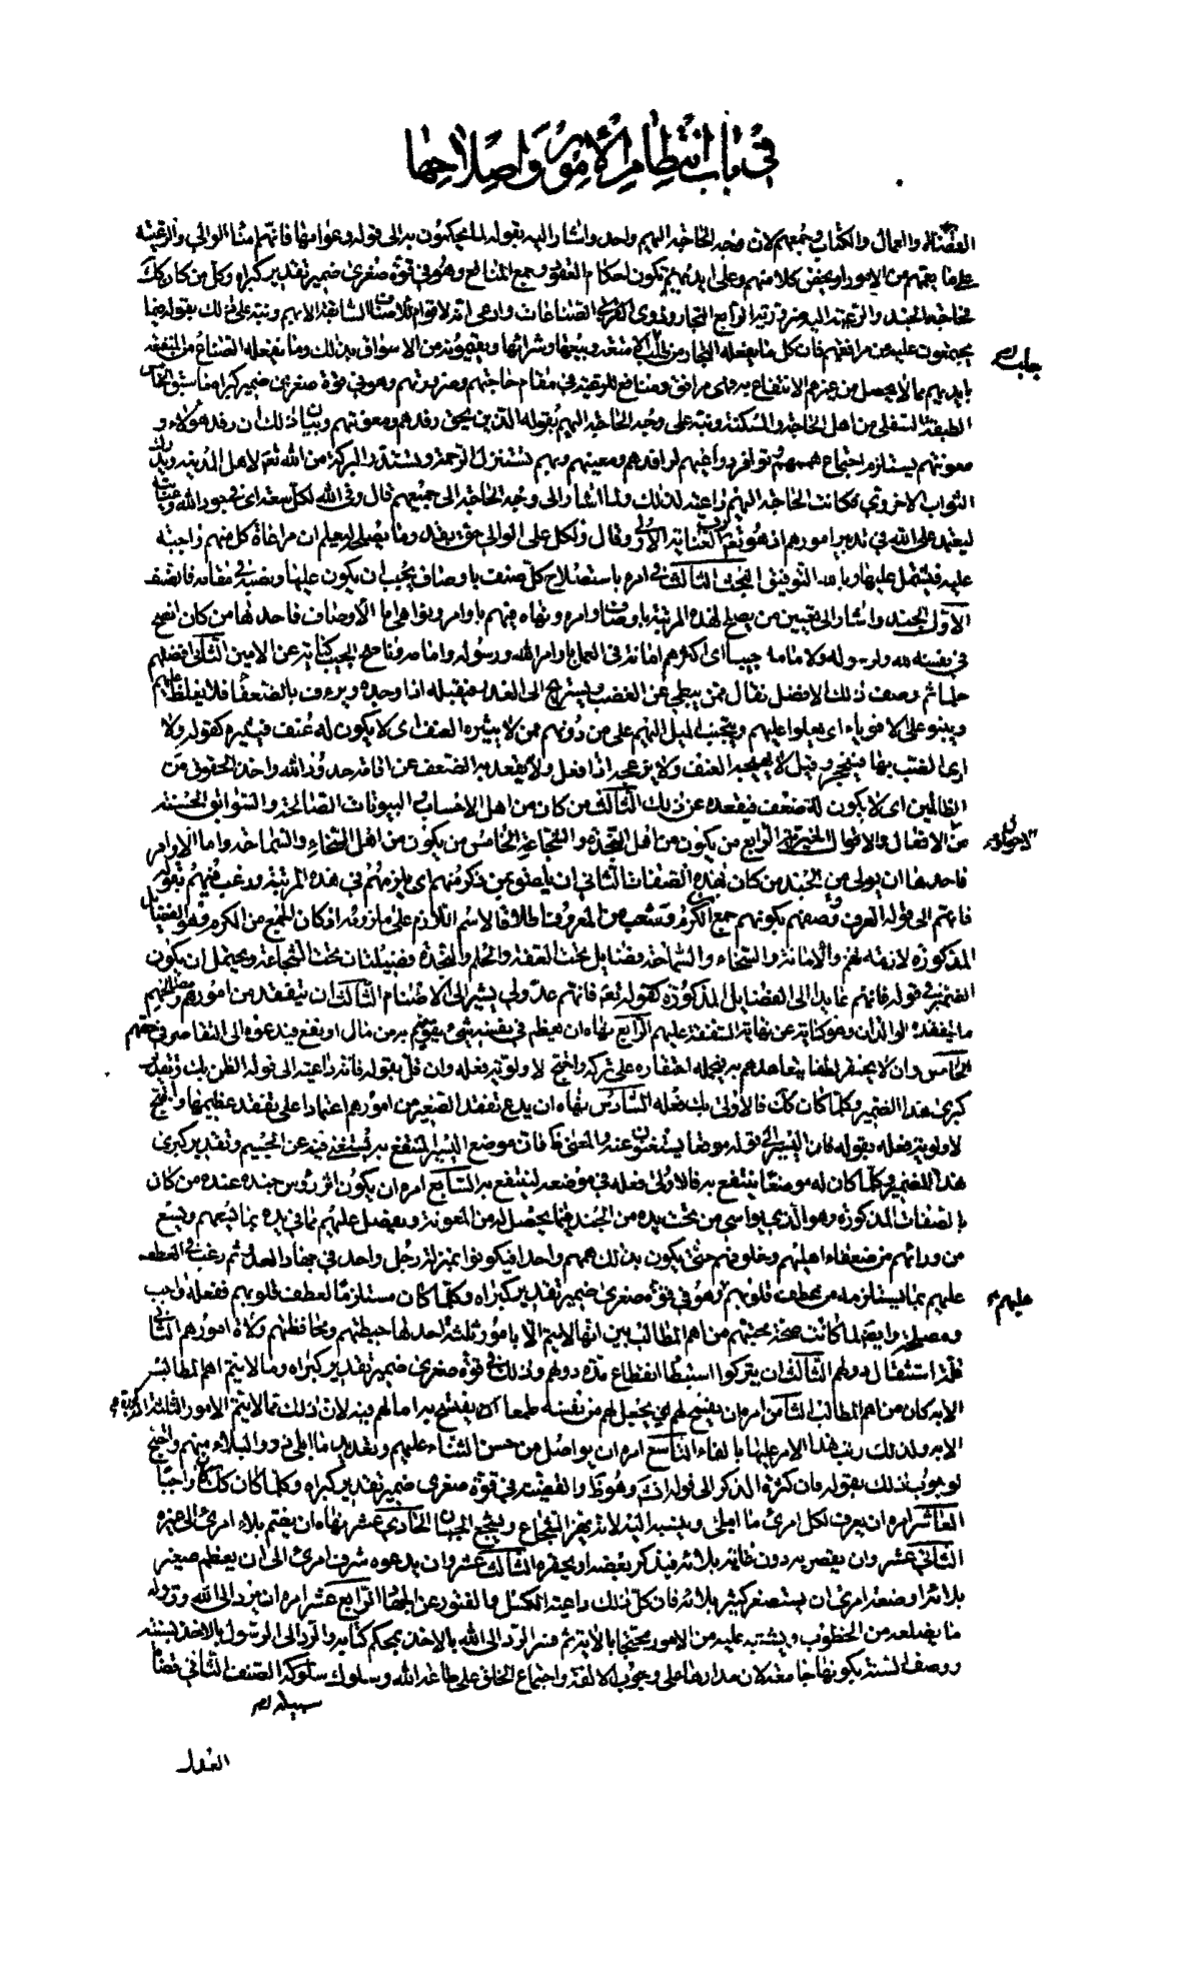 في باب انتظام الأمور وإصلاحها
القضاة والعمال والكتاب وجمعهم لان وجه الحاجة اليهم واحد واشار اليه بقوله لما يحكمون به الى قوله وعوامها فانهم امناء الوالي والرعية
على ما يعمهم من الامور او يخص كلا منهم وعلى ايديهم يكون احكام العقود وجمع المنافع وهو في قوة صغرى ضمير تقدير كبراه وكل من كان كك
فحاجة الجند والرعية اليه ضرورية الرابع التجار وذوى الصناعات وادعى انه لا قوام للاصناف السابقة الا بهم ونبه على ذلك بقوله فيما
يجتمعون عليه من مرافقهم فان كل ما يفعله التجار من جلب الامتعة وبيعها وشرائها ويقيمونه من الاسواق بذلك وما يفعله الصناع من المنفعة
بايديهم مما لا يحصل من غيرهم الانتفاع به فهى مرافق ومنافع للرعية في مقام حاجتهم وضرورتهم وهو في قوة صغرى ضمير كبراه ما سبق الخامس
الطبقة السفلى من اهل الحاجة والمسكنة ونبه على وجه الحاجة اليهم بقوله الذين يحق رفدهم ومعونتهم وبيان ذلك ان رفد هؤلاء و
معونتهم يستلزم اجتماع هممهم وتوافر دواعيهم لرافدهم ومعينهم وبهم تستنزل الرحمة وتستدر البركة من الله تعم لاهل المدينة ويدرك
الثواب الاخروي فكانت الحاجة اليهم داعية لذلك ولما اشار الى وجه الحاجة الى جميعهم قال وفي الله لكل سعة اى في جود الله وعنايته
ليعتمد على الله في تدبير امورهم اذ هو تعم العناية الاولى وقال ولكل على الوالي حق بقدر ما يصلحه ليعلم ان مراعاة كل منهم واجبة
عليه فيشتمل عليها وبالله التوفيق البحث الثالث في امره باستصلاح كل صنف باوصاف يجب ان يكون عليها وبضده في مقامه فالصنف
الاول الجند واشار الى تعيين من يصلح لهذه المرتبة باوصاف واوامره ونهاه فيهم باوامر ونواهى اما الاوصاف فاحدها من كان انصح
في نفسه لله ولرسوله ولامامه جيبا اى اكثرهم امانة في العمل باوامر الله ورسوله وامامه وناصح الجيب كناية عن الامين الثاني افضلهم
حلما ثم وصف ذلك الافضل فقال ممن يبطئ عن الغضب ويستريح الى العذر فيقبله اذا وجده ويرءف بالضعفاء فلا يغلظ عليهم
وينبو على الاقوياء اى يعلوا عليهم ويتجنب الميل اليهم على من دونهم ممن لا يثيره العنف اى لا يكون له عنف فيثيره كقوله ولا
ارى الضب بها ينجحر وقيل لا يهيجه العنف ولا يزعجه اذا فعل ولا يقعد به الضعف عن اقامة حدود الله واخذ الحقوق من
الظالمين اى لا يكون له ضعف فيقعده عن ذلك الثالث من كان من اهل الاحساب البيوتات الصالحة والسوابق الحسنة
من الافعال والاقوال الخيرية الرابع من يكون من اهل النجدة والشجاعة الخامس من يكون من اهل السخاء والسماحة واما الاوامر
فاحدها ان يولى من الجند من كان بهذه الصفات الثاني ان يلصق بمن ذكر منهم اى يلزمهم في هذه المرتبة ورغب فيهم بقوله
فانهم الى قوله العرف وصفهم بكونهم جمع الكرم وشعب من المعروف اطلاقا لاسم اللازم على ملزومه اذ كان الجمع من الكرم وهو الفضايل
المذكورة لازمة لهم والامانة والسخاء والسماحة فضايل تحت العفة والحلم والنجدة فضيلتان تحت الشجاعة ويحتمل ان يكون
الضمير في قوله فانهم عايدا الى الفضايل المذكورة كقوله تعم فانهم عدو لي يشير الى الاصنام الثالث ان يتفقد من امورهم ومصالحهم
ما يتفقده الوالدان وهو كناية عن نهاية الشفقة عليهم الرابع نهاه ان يعظم في نفسه شيء يقويهم به من مال او نفع فيدعوه الى التقاصر في حقهم
الخامس وان لا يحتقر لطفا يتعاهدهم به فيحمله احتقاره على تركه واحتج لاولوية فعله وان قل بقوله فانه داعية الى قوله الظن بك وتقدير
كبرى هذا الضمير وكلما كان كك فالاولى بك فعله السادس نهاه ان يدع تفقد الصغير من امورهم اعتمادا على تفقد عظيمها واحتج
لاولوية فعله بقوله فان لليسير الى قوله موضعا يستغنون عنه والمعنى فان موضع اليسير المنتفع به لا يستغنى فيه عن الجسيم وتقدير كبرى
هذا الضمير وكلما كان له موضعا ينتفع به فالاولى فعله في موضعه لينتفع به السابع امره ان يكون اثر رؤس جنده عنده من كان
بالصفات المذكورة وهو الذي يواسي من تحت يده من الجند فيما يحصل له من المعونة ويفضل عليهم مما في يده بما يسعهم ويسع
من ورائهم من ضعفاء اهليهم وخلوفهم حتى يكون بذلك همهم واحدا فيكونوا بمنزلة رجل واحد في جهاد العدو ثم رغب في العطف
عليهم بما يستلزمه من عطف قلوبهم وهو في قوة صغرى ضمير تقدير كبراه وكلما كان مستلزما لعطف قلوبهم ففعله واجب
ومصلحة وايضا لما كانت صحة محبتهم من اهم المطالب بين انها لا يتم الا بامور ثلثة احدها حيطتهم ومحافظتهم ولاة امورهم الثاني
قلة استثقال دولهم الثالث ان يتركوا استبطاء انقطاع مدة دولهم وذلك في قوة صغرى ضمير تقدير كبراه وما لا يتم اهم المطالب
الا به كان من اهم المطالب الثامن امره ان يفسح لهم في يجعل لهم من نفسه طمعا يفسح به آمالهم فيه لان ذلك مما لا يتم الامور الثلثة المذكورة
الا به ولذلك رتب هذا الامر عليها بالفاء التاسع امره ان يواصل من حسن الثناء عليهم وتعديد ما ابلى ذوو البلاء منهم واحتج
لوجوب ذلك بقوله فان كثرة الذكر الى قوله انش وهو ظ والقضية في قوة صغرى ضمير تقدير كبراه وكلما كان كك كان واجبا
العاشر امره ان يعرف لكل امرئ ما ابلى وينسبه اليه لانه يهز الشجاع ويشجع الجبان الحادي عشر نهاه ان يضم بلاء امرئ الى غيره
الثاني عشر وان يقصر به دون غاية بلائه فيذكر بعضه او يحقره الثالث عشر وان يدعوه شرف امرئ الى ان يعظم صغير
بلائه او ضعة امرئ ان يستصغر كثير بلائه فان كل ذلك داعية الكسل والفتور عن الجهاد الرابع عشر امره ان يرد الى الله ورسوله
ما يضلعه من الخطوب ويشتبه عليه من الامور محتجا بالآية ثم فسر الرد الى الله بالاخذ بمحكم كتابه والرد الى الرسول بالاخذ بسنته
ووصف السنة بكونها جامعة لان مدارها على وجوب الالفة واجتماع الخلق على طاعة الله وسلوك سلوكه الصنف الثاني قضاة
سبيله
العدل
جلب
عليهم